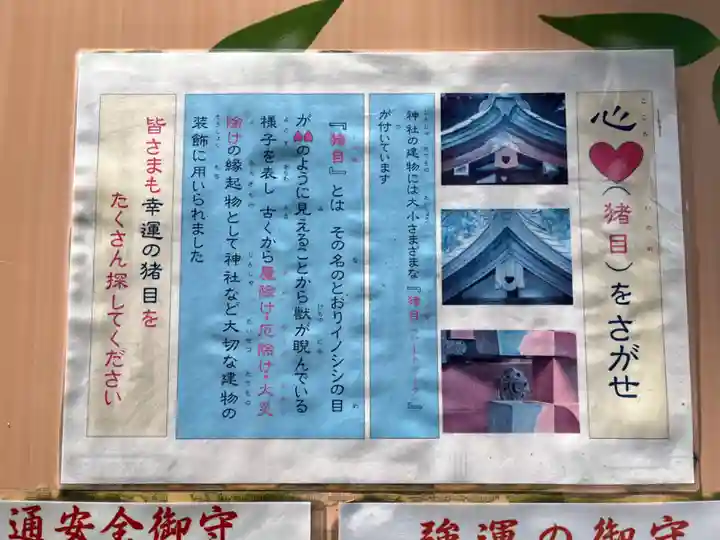 心❤(猪目)をさがせ
こころ
いのめ
神社の建物には大小さまざまな『猪目
が付いています
『猪目』とは その名のとおりイノシシの目
が❤のように見えることから獣が睨んでいる
様子を表し 古くから魔除け・厄除け・火災
除けの縁起物として神社など大切な建物の
装飾に用いられました
皆さまも幸運の猪目を
たくさん探してください
通安全御守
強運の御守